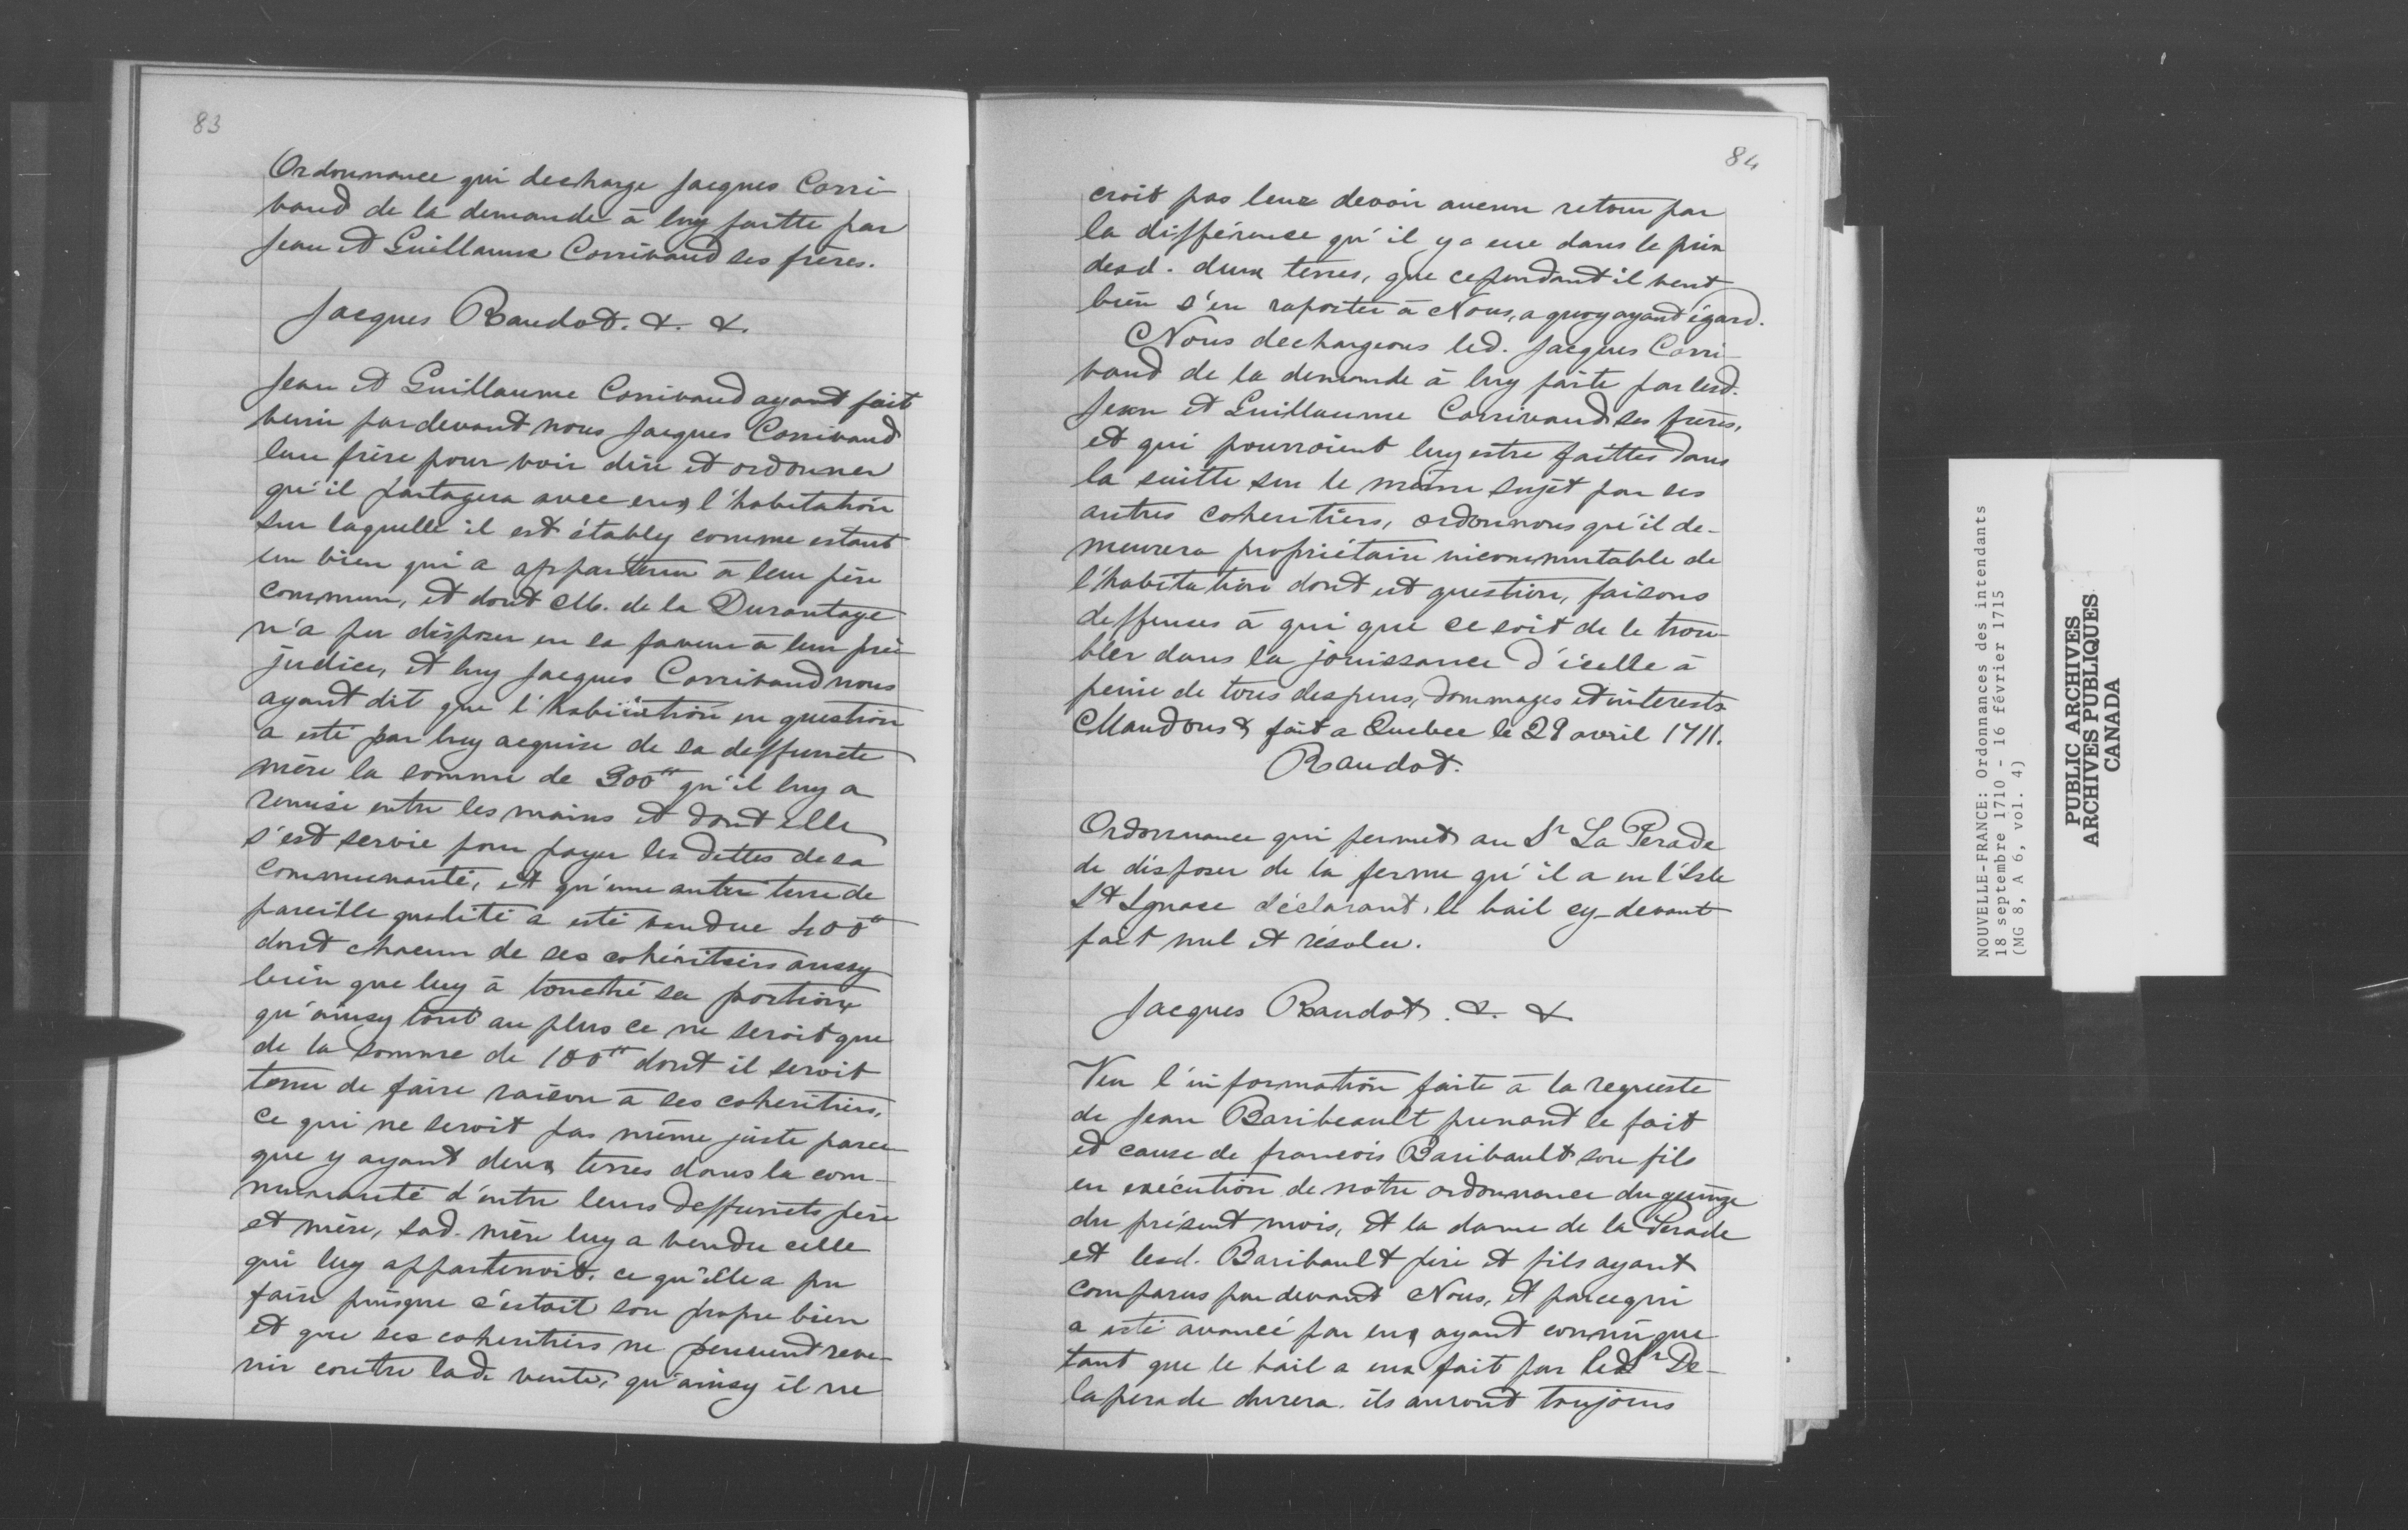 83
Ordonnance qui decharge Jacques Corri-
vaud de la demande à luy faitte par
Jean et Guillaume Corrivaud ses frères.
Jacques Raudot. &. &.
Jean et Guillaume Corrivaud ayant fait
venir pardevant nous Jacques Corrivaud
leur frère pour voir dire et ordonner
qu'il partagera avec eux l'habitation
sur laquelle il est étably comme estant
un bien qui a appartenu à leur père
commun, et dont M. de la Durantaye
n'a pu disposer en sa faveur à leur pré-
judice, et luy Jacques Corrivaud nous
ayant dit que l'habitation en question
a esté par luy acquise de sa deffuncte
mère la somme de 300tt qu'il luy a
remise entre les mains et dont elle
s'est servie pour payer les dettes de sa
communauté, et qu'une autre terre de
pareille qualité a esté vendue 400tt
dont chacun de ses cohéritiers aussy
bien que luy à touché sa portion,
qu'ainsy tout au plus ce ne seroit que
de la somme de 100tt dont il seroit
tenu de faire raison à ses coheritiers,
ce qui ne seroit pas même juste parce
que y ayant deux terres dans la com-
munauté d'entre leurs deffuncts père
et mère, sad. mère luy a vendu celle
qui luy appartenoit, ce qu'elle a pu
faire puisque c'estoit son propre bien
et que ses coheritiers ne peuvent reve-
nir contre lad. vente, qu'ainsy il ne
84
croit pas leur devoir aucun retour par
la différence qu'il y a eue dans le prix
desd. deux terres, que cependant il veut
bien s'en raporter à Nous, a quoy ayant égard.
Nous dechargeons led. Jacques Corri-
vaud de la demande à luy faite par lesd.
Jean et Guillaume Corrivaud ses frères,
et qui pourroient luy estre faittes dans
la suitte sur le même sujet par ses
autres coheritiers, ordonnons qu'il de-
meurera propriétaire incommutable de
l'habitation dont est question, faisons
deffenses à qui que ce soit de le trou-
bler dans la jouissance d'icelle à
peine de tous despens, dommages et interests
Mandons & fait a Quebec le 29 avril 1711.
Raudot.
Ordonnance qui permet au Sr La Perade
de disposer de la ferme qu'il a en l'Isle
St Ignace déclarant, le bail cy-devant
fait nul et résolu.
Jacques Raudot. &. &.
Veu l'information faite à la requeste
de Jean Baribeault prenant le fait
et cause de francois Baribault son fils
en exécution de notre ordonnance du quinze
du présent mois, et la dame de la Perade
et lesd. Baribault père et fils ayant
comparus par devant Nous, et parcequi
a esté avancé par eux ayant connu que
tant que le bail a eux fait par led Sr De-
laperade durera. ils auront toujours
NOUVELLE-FRANCE: Ordonnances des intendants
18 septembre 1710 - 16 février 1715
(MG 8, A 6, vol. 4)
PUBLIC ARCHIVES
ARCHIVES PUBLIQUES
CANADA